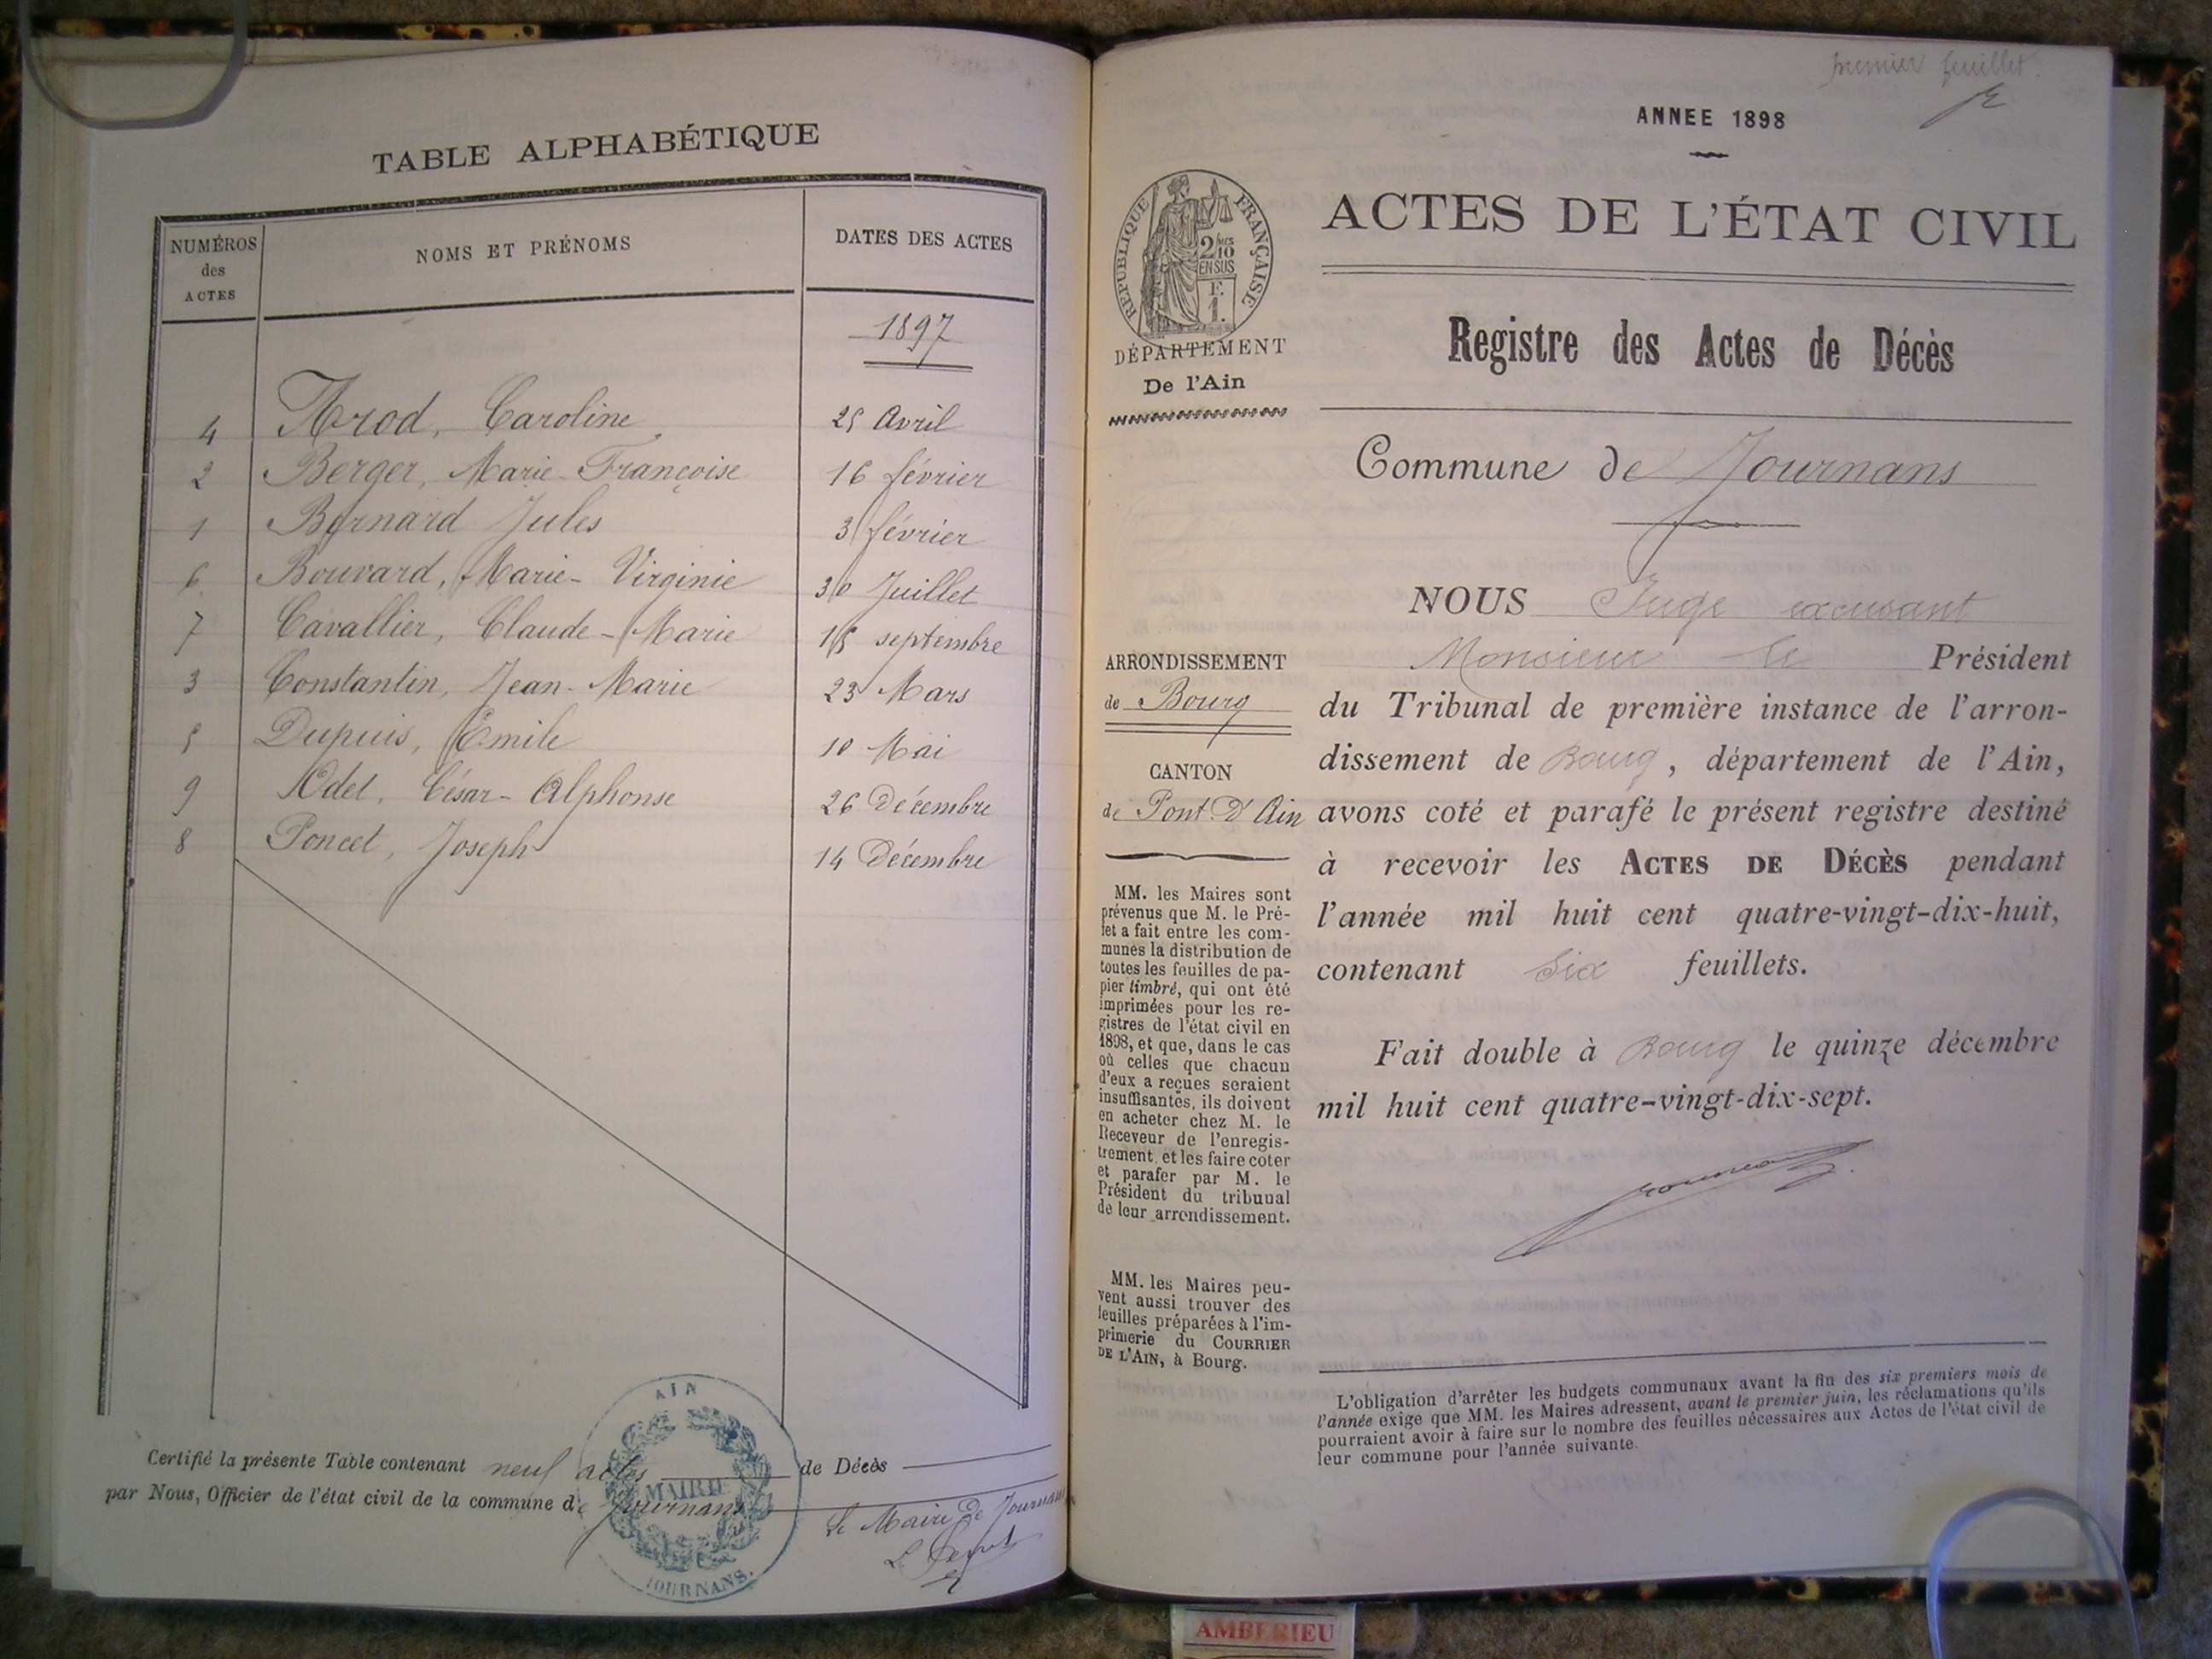 TABLE ALPHABÉTIQUE
NUMÉROS des ACTES
NOMS ET PRÉNOMS
DATES DES ACTES
1897
4 Arod, Caroline 25 Avril
2 Berger, Marie-Françoise 16 février
1 Bernard Jules 3 février
6 Bouvard, Marie-Virginie 30 Juillet
7 Cavallier, Claude-Marie 15 septembre
3 Constantin, Jean-Marie 23 Mars
5 Dupuis, Emile 10 Mai
9 Odet, César-Alphonse 26 Décembre
8 Poncet, Joseph 14 Décembre
Certifié la présente Table contenant neuf actes de Décès
par Nous, Officier de l'état civil de la commune de Journans
Le Maire de Journans
AIN
MAIRIE
JOURNANS.
premier feuillet.
ANNEE 1898
ACTES DE L'ÉTAT CIVIL
RÉPUBLIQUE FRANÇAISE
2/10
EN SUS
F.
1.
DÉPARTEMENT
De l'Ain
Registre des Actes de Décès
Commune de Journans
ARRONDISSEMENT
de Bourg
CANTON
de Pont D'Ain
MM. les Maires sont
prévenus que M. le Pré-
fet a fait entre les com-
munes la distribution de
toutes les feuilles de pa-
pier timbré, qui ont été
imprimées pour les re-
gistres de l'état civil en
1898, et que, dans le cas
où celles que chacun
d'eux a reçues seraient
insuffisantes, ils doivent
en acheter chez M. le
Receveur de l'enregis-
trement, et les faire coter
et parafer par M. le
Président du tribunal
de leur arrondissement.
MM. les Maires peu-
vent aussi trouver des
feuilles préparées à l'im-
primerie du COURRIER
DE L'AIN, à Bourg.
NOUS Juge excusant
Monsieur le Président
du Tribunal de première instance de l'arron-
dissement de Bourg, département de l'Ain,
avons coté et parafé le présent registre destiné
à recevoir les ACTES DE DÉCÈS pendant
l'année mil huit cent quatre-vingt-dix-huit,
contenant six feuillets.
Fait double à Bourg le quinze décembre
mil huit cent quatre-vingt-dix-sept.
L'obligation d'arrêter les budgets communaux avant la fin des six premiers mois de
l'année exige que MM. les Maires adressent, avant le premier juin, les réclamations qu'ils
pourraient avoir à faire sur le nombre des feuilles nécessaires aux Actes de l'état civil de
leur commune pour l'année suivante.
AMBERIEU